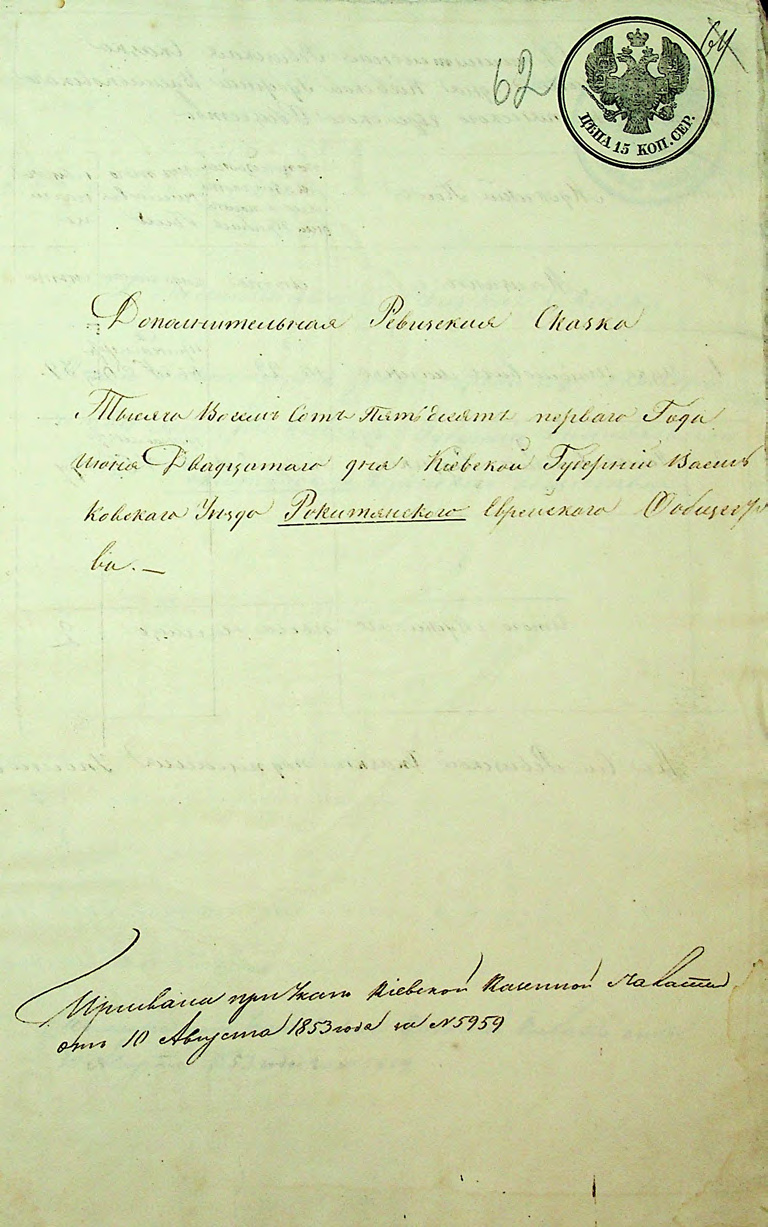 62
64
ЦѢНА 15 КОП. СЕР.
Дополнительная Ревизская Сказка
Тысяча Восемь Сотъ Пятьдесятъ перваго Года
Июня Двадцатаго дня Кіевской Губерніи Василь
ковскаго Уезда Рокитянского Еврейского Общест
ва. —
при Указѣ Кіевской Казенной Палаты
отъ 10 Августа 1853 года за N 5959